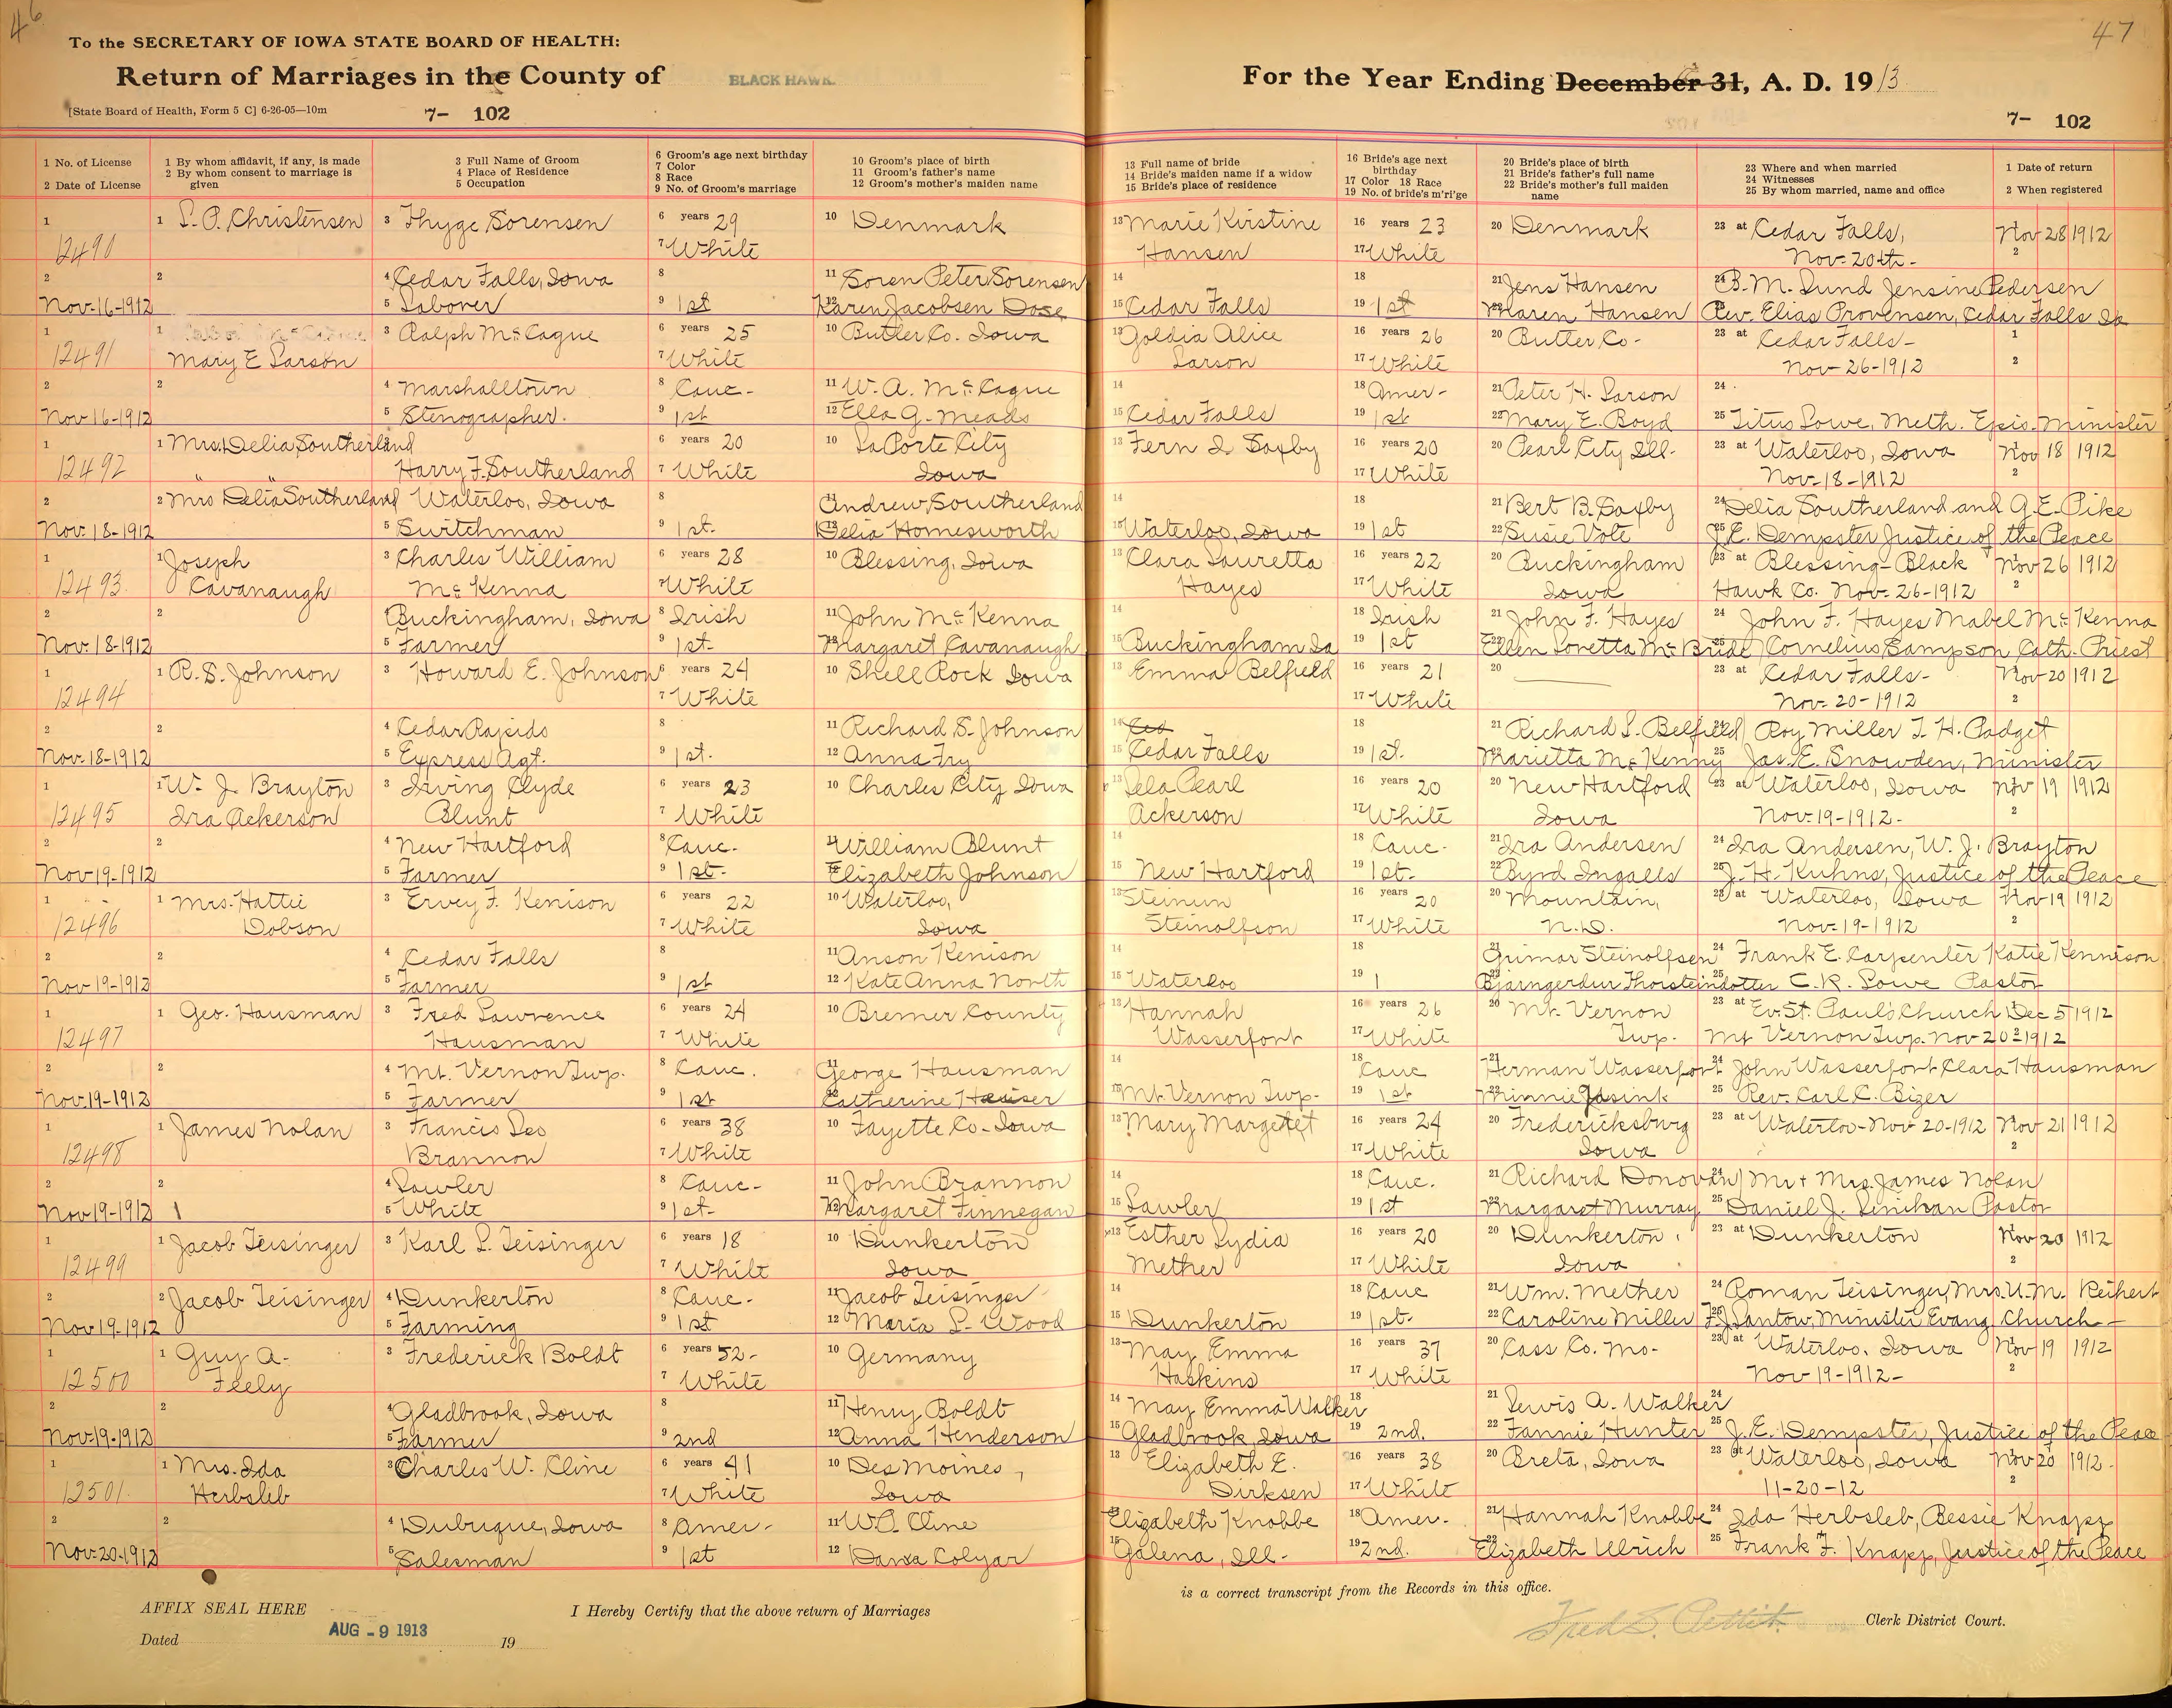 46
To the SECRETARY OF IOWA STATE BOARD OF HEALTH:
Return of Marriages in the County of BLACK HAWK
[State Board of Health, Form 5 C] 6-26-05—10m
7- 102
1 No. of License
2 Date of License
1 By whom affidavit, if any, is made
2 By whom consent to marriage is given
3 Full Name of Groom
4 Place of Residence
5 Occupation
6 Groom's age next birthday
7 Color
8 Race
9 No. of Groom's marriage
10 Groom's place of birth
11 Groom's father's name
12 Groom's mother's maiden name
47
For the Year Ending December 31, A. D. 1913
7- 102
13 Full name of bride
14 Bride's maiden name if a widow
15 Bride's place of residence
16 Bride's age next birthday
17 Color 18 Race
19 No. of bride's m'ri'ge
20 Bride's place of birth
21 Bride's father's full name
22 Bride's mother's full maiden name
23 Where and when married
24 Witnesses
25 By whom married, name and office
1 Date of return
2 When registered
1 1 S. P. Christensen 3 Thyge Sorensen 6 years 29 10 Denmark 13 Marie Kirstine 16 years 23 20 Denmark 23 at Cedar Falls, Nov 28 1912
12490 7 White Hansen 17 White Nov. 20th - 2
2 2 4 Cedar Falls, Iowa 8 11 Soren Peter Sorensen 14 18 21 Jens Hansen 24 B. M. Lund Jensine Pedersen
Nov-16-1912 5 Laborer 9 1st 12 Karen Jacobsen Dose 15 Cedar Falls 19 1st 22 Maren Hansen 25 Rev. Elias Provensen, Cedar Falls Ia
1 1 3 Ralph McCague 6 years 25 10 Butler Co. Iowa 13 Goldia Alice 16 years 26 20 Butler Co- 23 at Cedar Falls- 1
12491 Mary E Larson 7 White Larson 17 White Nov-26-1912 2
2 2 4 Marshalltown 8 Cauc- 11 W. A. McCague 14 18 Amer- 21 Peter H. Larson 24
Nov-16-1912 5 Stenographer. 9 1st 12 Ella G. Meads 15 Cedar Falls 19 1st 22 Mary E. Boyd 25 Titus Lowe, Meth. Epis. Minister
1 1 Mrs. Delia Southerland 6 years 20 10 LaPorte City 13 Fern I Saxby 16 years 20 20 Pearl City Ill- 23 at Waterloo, Iowa Nov 18 1912
12492 " " Harry F. Southerland 7 White Iowa 17 White Nov-18-1912 2
2 2 Mrs Delia Southerland Waterloo, Iowa 8 Andrew Southerland 14 18 21 Bert B. Saxby 24 Delia Southerland and G. E. Pike
Nov-18-1912 5 Switchman 9 1st- 12 Delia Homesworth 15 Waterloo, Iowa 19 1st 22 Susie Vote 25 J. E. Dempster Justice of the Peace
1 1 Joseph 3 Charles William 6 years 28 10 Blessing, Iowa 13 Clara Lauretta 16 years 22 20 Buckingham 23 at Blessing-Black Nov 26 1912
12493 Cavanaugh McKenna 7 White Hayes 17 White Iowa Hawk Co. Nov-26-1912 2
2 2 Buckingham, Iowa 8 Irish 11 John McKenna 14 18 Irish 21 John F. Hayes 24 John F. Hayes Mabel McKenna
Nov-18-1912 5 Farmer 9 1st- 12 Margaret Cavanaugh 15 Buckingham Ia 19 1st 22 Ellen Loretta McBride 25 Cornelius Sampson Cath. Priest
1 1 R. S. Johnson 3 Howard E. Johnson 6 years 24 10 Shell Rock Iowa 13 Emma Belfield 16 years 21 20 23 at Cedar Falls- Nov-20 1912
12494 7 White 17 White Nov-20-1912 2
2 2 4 Cedar Rapids 8 11 Richard S. Johnson 14 Ced 18 21 Richard S. Belfield 24 Roy Miller T. H. Padget
Nov-18-1912 5 Express Agt. 9 1st. 12 Anna Fry 15 Cedar Falls 19 1st. 22 Marietta McKenny 25 Jas. E. Snowden, Minister
1 1 W. J. Brayton 3 Irving Clyde 6 years 23 10 Charles City Iowa 13 Lela Pearl 16 years 20 20 New Hartford 23 at Waterloo, Iowa Nov 19 1912
12495 Ira Ackerson Blunt 7 White Ackerson 17 White Iowa Nov-19-1912- 2
2 2 4 New Hartford 8 Cauc- 11 William Blunt 14 18 Cauc- 21 Ira Andersen 24 Ira Andersen, W. J. Brayton
Nov-19-1912 5 Farmer 9 1st- 12 Elizabeth Johnson 15 New Hartford 19 1st- 22 Byrd Ingalls 25 J. H. Kuhns, Justice of the Peace
1 1 Mrs. Hattie 3 Ervey F. Kenison 6 years 22 10 Waterloo, 13 Steinun 16 years 20 20 Mountain, 23 at Waterloo, Iowa Nov 19 1912
12496 Dobson 7 White Iowa Steinolfson 17 White N.D. Nov-19-1912 2
2 2 4 Cedar Falls 8 11 Anson Kenison 14 18 21 Grimar Steinolfsen 24 Frank E. Carpenter Katie Kennison
Nov-19-1912 5 Farmer 9 1st 12 Kate Anna North 15 Waterloo 19 1 22 Bjarngerdur Thorsteindotter 25 C. R. Lowe Pastor
1 1 Geo. Hausman 3 Fred Lawrence 6 years 24 10 Bremer County 13 Hannah 16 years 26 20 Mt. Vernon 23 at Ev. St. Paul's Church Dec 5 1912
12497 Hausman 7 White Wasserfort 17 White Twp. Mt Vernon Twp. Nov 20 1912
2 2 4 Mt. Vernon Twp. 8 Cauc. 11 George Hausman 14 18 Cauc 21 Herman Wasserfort 24 John Wasserfort Clara Hausman
Nov-19-1912 5 Farmer 9 1st 12 Catherine Hauser 15 Mt. Vernon Twp- 19 1st 22 Minnie Jasink 25 Rev. Carl C. Bizer
1 1 James Nolan 3 Francis Leo 6 years 38 10 Fayette Co-Iowa 13 Mary Margeret 16 years 24 20 Fredericksburg 23 at Waterloo-Nov 20-1912 Nov 21 1912
12498 Brannon 7 White 17 White Iowa 2
2 2 4 Lawler 8 Cauc- 11 John Brannon 14 18 Cauc. 21 Richard Donovan 24 Mr + Mrs. James Nolan
Nov-19-1912 5 White 9 1st- 12 Margaret Finnegan 15 Lawler 19 1st 22 Margaret Murray 25 Daniel J. Lenihan Pastor
1 1 Jacob Teisinger 3 Karl L. Teisinger 6 years 18 10 Dunkerton 13 Esther Lydia 16 years 20 20 Dunkerton, 23 at Dunkerton Nov 20 1912
12499 7 White Iowa Mether 17 White Iowa 2
2 2 Jacob Teisinger 4 Dunkerton 8 Cauc- 11 Jacob Teisinger 14 18 Cauc 21 Wm. Mether 24 Roman Teisinger, Mrs. U. M. Reihert
Nov-19-1912 5 Farming 9 1st 12 Maria L. Wood 15 Dunkerton 19 1st- 22 Caroline Miller 25 F. J. Santow, Minister Evang. Church-
1 1 Guy A. 3 Frederick Boldt 6 years 52- 10 Germany 13 May Emma 16 years 37 20 Cass Co. Mo- 23 at Waterloo, Iowa Nov 19 1912
12500 Feely 7 White Haskins 17 White Nov-19-1912- 2
2 2 4 Gladbrook, Iowa 8 11 Henry Boldt 14 May Emma Walker 18 21 Lewis A. Walker 24
Nov-19-1912 5 Farmer 9 2nd 12 Anna Henderson 15 Gladbrook Iowa 19 2nd. 22 Fannie Hunter 25 J. E. Dempster, Justice of the Peace
1 1 Mrs. Ida 3 Charles W. Cline 6 years 41 10 Des Moines, 13 Elizabeth E. 16 years 38 20 Breta, Iowa 23 at Waterloo, Iowa Nov 20 1912-
12501 Herbsleb 7 White Iowa Dirksen 17 White 11-20-12 2
2 2 4 Dubuque, Iowa 8 Amer- 11 W. O. Cline Elizabeth Knobbe 18 Amer- 21 Hannah Knobbe 24 Ida Herbsleb, Bessie Knapp
Nov-20-1912 5 Salesman 9 1st 12 Colyar 15 Galena, Ill- 19 2nd. 22 Elizabeth Ulrich 25 Frank F. Knapp, Justice of the Peace
AFFIX SEAL HERE
I Hereby Certify that the above return of Marriages
is a correct transcript from the Records in this office.
Dated AUG - 9 1913 19
Fred S. Pettit Clerk District Court.